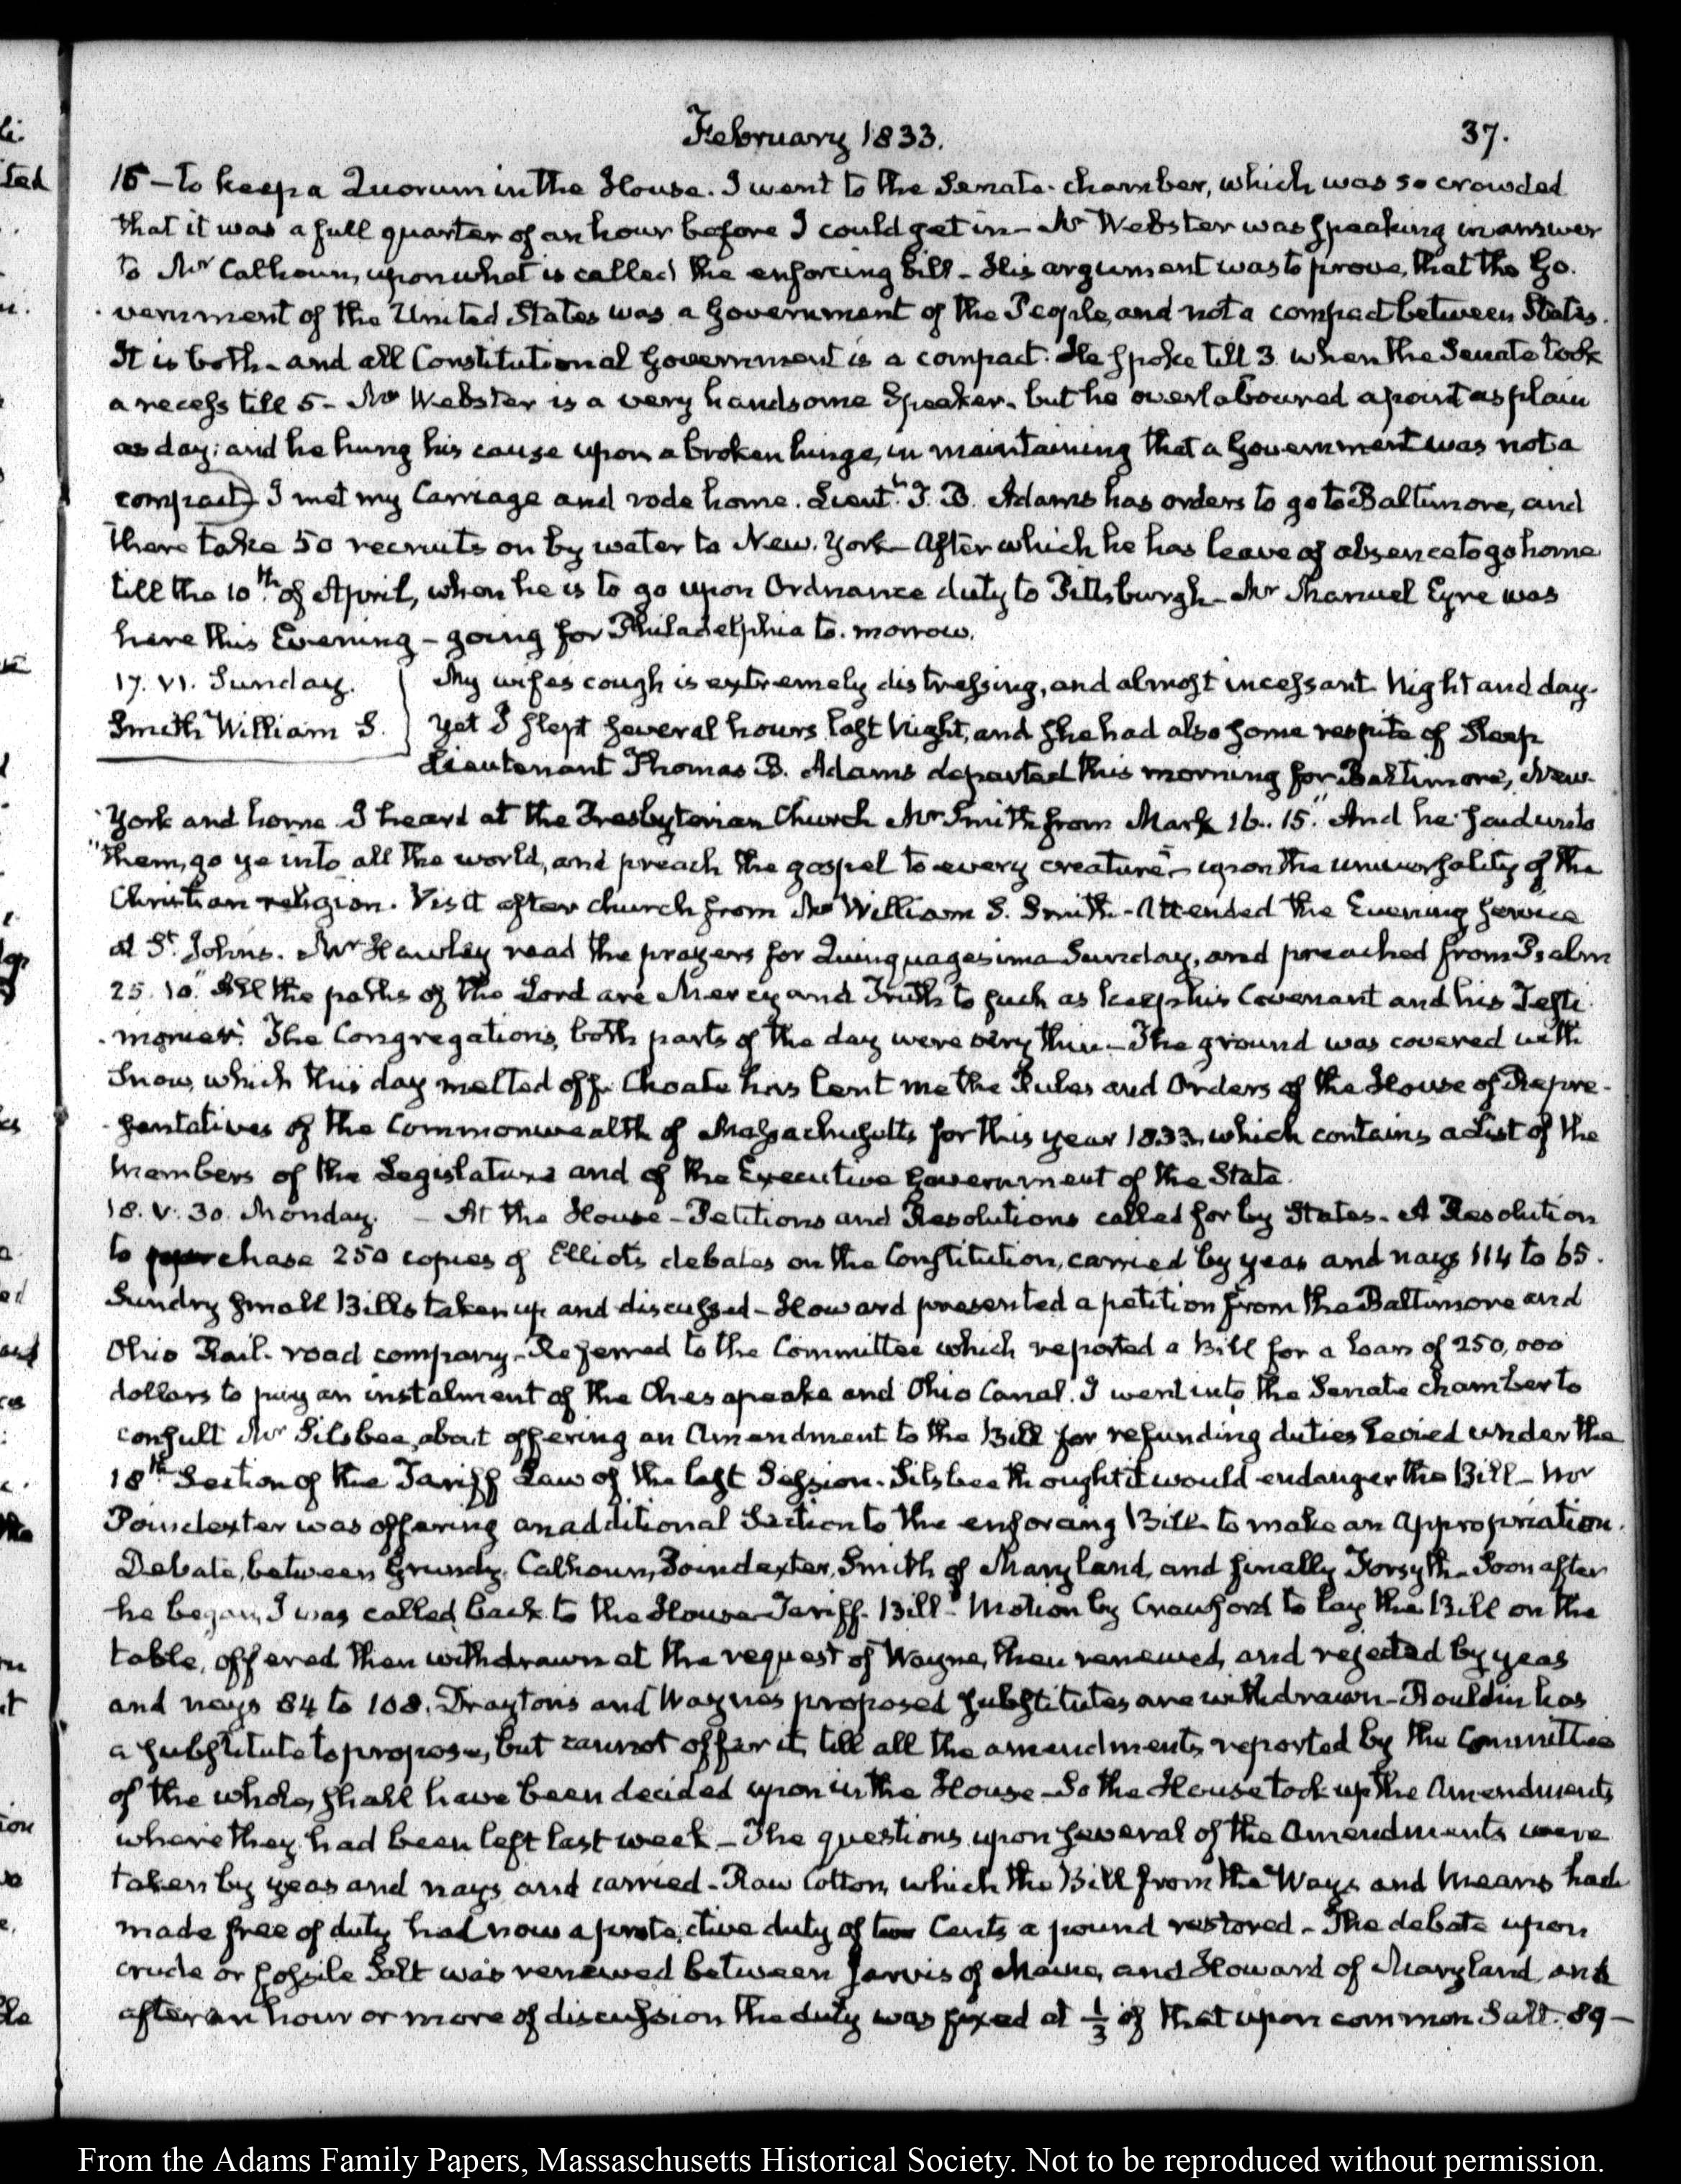 February 1833.
37.
16 – to keep a Quorum in the House. I went to the Senate-chamber, which was so crowded
that it was a full quarter of an hour before I could get in – Mr Webster was speaking in answer
to Mr Calhoun, upon what is called the enforcing bill – His argument was to prove, that the Go-
-vernment of the United States was a Government of the People, and not a compact between States.
It is both – and all Constitutional Government is a compact. He spoke till 3. when the Senate took
a recess till 5 – Mr Webster is a very handsome Speaker – but he overlaboured a point as plain
as day; and he hung his cause upon a broken hinge, in maintaining that a Government was not a
compact) I met my Carriage and rode home. Lieutt. T. B. Adams has orders to go to Baltimore, and
there take 50 recruits on by water to New-York – After which he has leave of absence to go home
till the 10th of April, when he is to go upon Ordnance duty to Pittsburgh – Mr Manuel Eyre was
here this Evening – going for Philadelphia to-morrow.
17. VI. Sunday. My wife's cough is extremely distressing, and almost incessant Night and day.
Smith William S. Yet I slept several hours last Night, and she had also some respite of Sleep
Lieutenant Thomas B. Adams departed this morning for Baltimore, New-
York and home. I heard at the Presbyterian Church Mr Smith from Mark 16. 15." And he said unto
"them, go ye into all the world, and preach the gospel to every creature" – upon the universality of the
Christian religion. Visit after church from Mr William S. Smith – Attended the Evening service
at St. Johns. Mr Hawley read the prayers for Quinquagesima Sunday, and preached from Psalm
25. 10." All the paths of the Lord are Mercy and Truth to such as keep his Covenant and his Testi-
-monies". The Congregations, both parts of the day were very thin – The ground was covered with
Snow, which this day melted off. Choate has lent me the Rules and Orders of the House of Repre-
-sentatives of the Commonwealth of Massachusetts for this year 1833, which contains a List of the
Members of the Legislature and of the Executive Government of the State.
18. V. 30. Monday. – At the House – Petitions and Resolutions called for by States. A Resolution
to purchase 250 copies of Elliot's debates on the Constitution, carried by yeas and nays 114 to 65.
Sundry small Bills taken up and discussed – Howard presented a petition from the Baltimore and
Ohio Rail-road company – Referred to the Committee which reported a Bill for a loan of 250,000
dollars to pay an instalment of the Chesapeake and Ohio Canal. I went into the Senate chamber to
consult Mr Silsbee, about offering an Amendment to the Bill for refunding duties levied under the
18th Section of the Tariff Law of the last Session. Silsbee thought it would endanger the Bill – Mr
Poindexter was offering an additional Section to the enforcing Bill – to make an appropriation.
Debate, between Grundy, Calhoun, Poindexter, Smith of Maryland, and finally Forsyth – Soon after
he began, I was called back to the House – Tariff-Bill – Motion by Crawford to lay the Bill on the
table, offered then withdrawn at the request of Wayne, then renewed, and rejected by yeas
and nays 84 to 108. Drayton's and Wayne's proposed substitutes are withdrawn – Bouldin has
a substitute to propose, but cannot offer it, till all the amendments reported by the Committee
of the whole, shall have been decided upon in the House – So the House took up the Amendments
where they had been left last week – The questions upon several of the Amendments were
taken by yeas and nays and carried – Raw Cotton, which the Bill from the Ways and Means had
made free of duty had now a protective duty of two Cents a pound restored – The debate upon
crude or fossile Salt was renewed between Jarvis of Maine, and Howard of Maryland, and
after an hour or more of discussion the duty was fixed at 1/3 of that upon common Salt. 89 –
From the Adams Family Papers, Massachusetts Historical Society. Not to be reproduced without permission.